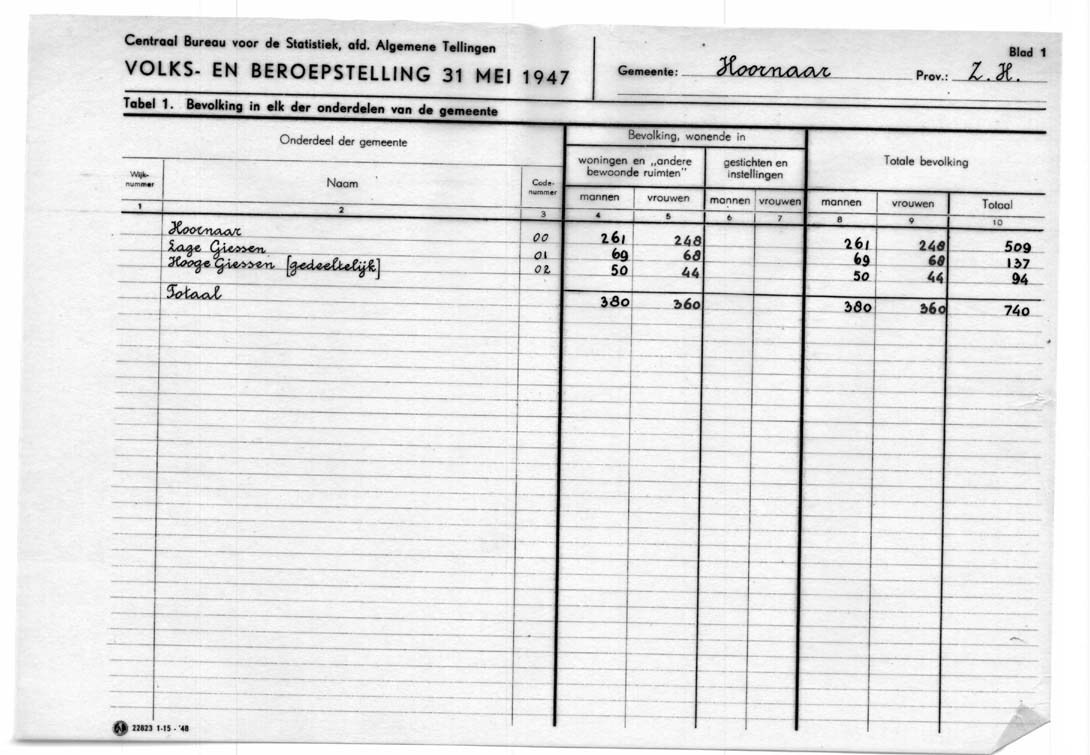 Centraal Bureau voor de Statistiek, afd. Algemene Tellingen
VOLKS- EN BEROEPSTELLING 31 MEI 1947
Gemeente: Hoornaar
Prov.: Z.H.
Blad 1
Tabel 1. Bevolking in elk der onderdelen van de gemeente
Onderdeel der gemeente
Bevolking, wonende in
Totale bevolking
woningen en „andere bewoonde ruimten"
gestichten en instellingen
Wijk-nummer
Naam
Code-nummer
mannen vrouwen mannen vrouwen mannen vrouwen Totaal
1 2 3 4 5 6 7 8 9 10
Hoornaar 00 261 248 261 248 509
Lage Giessen 01 69 68 69 68 137
Hooge Giessen [gedeeltelijk] 02 50 44 50 44 94
Totaal 380 360 380 360 740
22823 1-15 - '48